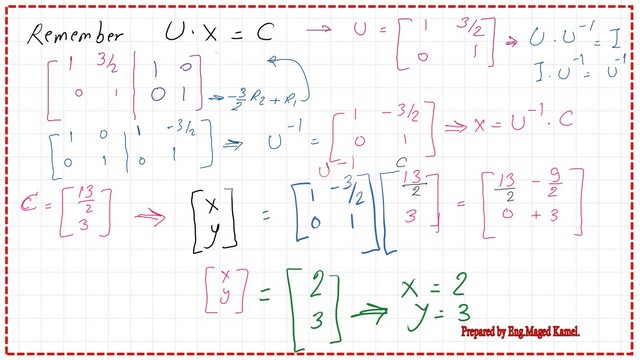 Remember U·X = C → U = [1 3/2; 0 1] ⇒ U·U⁻¹ = I
I·U⁻¹ = U⁻¹
[1 3/2 | 1 0; 0 1 | 0 1] ⇒ -3/2 R2 + R1
[1 0 | 1 -3/2; 0 1 | 0 1] ⇒ U⁻¹ = [1 -3/2; 0 1] ⇒ X = U⁻¹·C
U⁻¹ C
C = [13/2; 3] ⇒ [x; y] = [1 -3/2; 0 1] [13/2; 3] = [13/2 - 9/2; 0 + 3]
[x; y] = [2; 3] ⇒ x = 2
y = 3
Prepared by Eng.Maged Kamel.